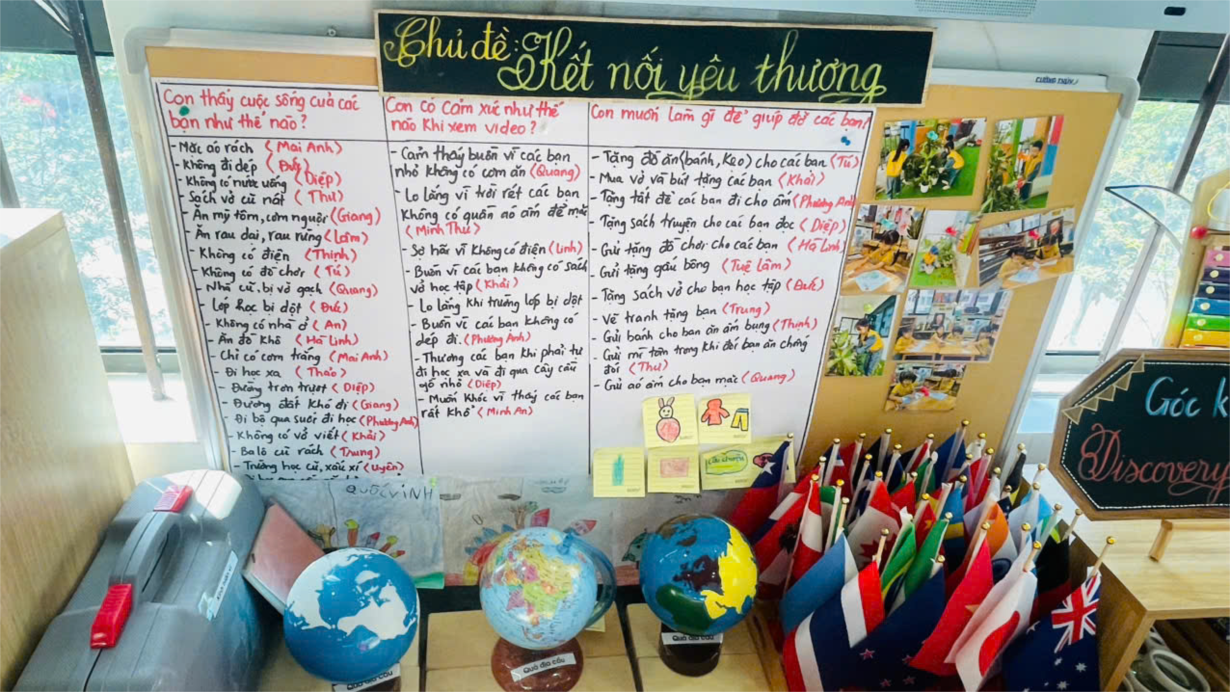 Chủ đề: Kết nối yêu thương
CƯỜNG THỊNH
Con thấy cuộc sống của các
bạn như thế nào?
- Mặc áo rách (Mai Anh)
- Không đi dép (Đức)
- Không có nước uống (Diệp)
- Sách vở cũ nát (Thư)
- Ăn mỳ tôm, cơm nguội (Giang)
- Ăn rau dại, rau rừng (Lâm)
- Không có điện (Thịnh)
- Không có đồ chơi (Tú)
- Nhà cũ, bị vỡ gạch (Quang)
- Lớp học bị dột (Đức)
- Không có nhà ở (An)
- Ăn đồ khô (Hà Linh)
- Chỉ có cơm trắng (Mai Anh)
- Đi học xa (Thảo)
- Đường trơn trượt (Diệp)
- Đường đất khó đi (Giang)
- Đi bộ qua suối đi học (Phương Anh)
- Không có vở viết (Khải)
- Balô cũ rách (Trung)
- Trường học cũ, xấu xí (Uyên)
Con có cảm xúc như thế
nào khi xem video?
- Cảm thấy buồn vì các bạn
nhỏ không có cơm ăn (Quang)
- Lo lắng vì trời rét các bạn
không có quần áo ấm để mặc
(Minh Thư)
- Sợ hãi vì không có điện (Linh)
- Buồn vì các bạn không có sách
vở học tập (Khải)
- Lo lắng khi trường lớp bị dột
- Buồn vì các bạn không có
dép đi. (Phương Anh)
- Thương các bạn khi phải tự
đi học xa và đi qua cây cầu
gỗ nhỏ (Diệp)
- Muốn khóc vì thấy các bạn
rất khổ (Minh An)
Con muốn làm gì để giúp đỡ các bạn?
- Tặng đồ ăn (bánh, kẹo) cho các bạn (Tú)
- Mua vở và bút tặng các bạn (Khải)
- Tặng tất để các bạn đi cho ấm (Phương Anh)
- Tặng sách truyện cho các bạn đọc (Diệp)
- Gửi tặng đồ chơi cho các bạn (Hà Linh)
- Gửi tặng gấu bông (Tuệ Lâm)
- Tặng sách vở cho bạn học tập (Đức)
- Vẽ tranh tặng bạn (Trung)
- Gửi bánh cho bạn ăn ấm bụng (Thịnh)
- Gửi mì tôm trong khi đói bạn ăn chống
đói (Thư)
- Gửi áo ấm cho bạn mặc (Quang)
QUỐC VINH
Góc k
Discovery
Quả địa cầu
Quả địa cầu
Quả địa cầu